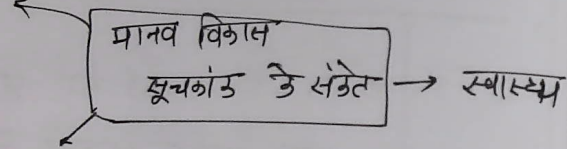 मानव विकास
सूचकांक के संकेत → स्वास्थ्य